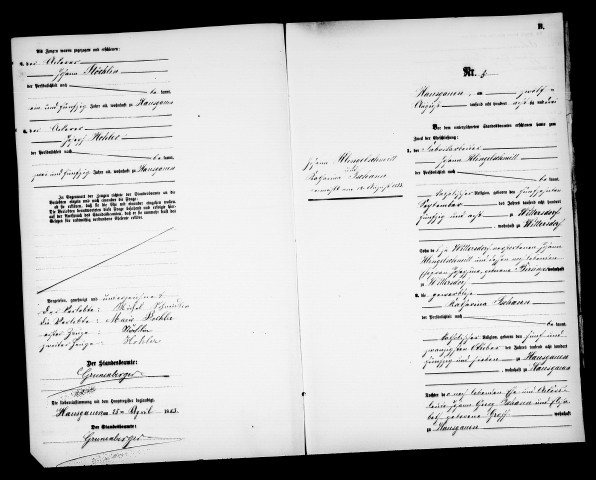 Als Zeugen waren zugezogen und erschienen:
3. der Ackerer
Johann Stöcklin
der Persönlichkeit nach
be kannt,
ein und fünfzig Jahre alt, wohnhaft zu Hausgauen
4. der Ackerer
Josef Kohler
der Persönlichkeit nach
be kannt,
zwei und fünfzig Jahre alt, wohnhaft zu Hausgauen
In Gegenwart der Zeugen richtete der Standesbeamte an die
Verlobten einzeln und nach einander die Frage:
ob sie erklären, daß sie die Ehe mit einander eingehen wollen.
Die Verlobten beantworteten diese Frage bejahend und erfolgte hier-
auf der Ausspruch des Standesbeamten, daß er sie nunmehr kraft des
Gesetzes für rechtmäßig verbundene Eheleute erkläre.
Vorgelesen, genehmigt und unterzeichnet
Der Verlobte:
die Verlobte: Marie Kohler
erster Zeuge: Stöcklin
zweiter Zeuge: Kohler
Der Standesbeamte:
Grunenberger
Die Uebereinstimmung mit dem Hauptregister beglaubigt
Hausgauen am 15ten April 1883.
Der Standesbeamte:
Grunenberger
Johann Wengelschmitt
und
Katharina Johann
B.
Nr. 4
Hausgauen, am zwölf
August tausend acht hundert acht zig und drei
Vor dem unterzeichneten Standesbeamten erschienen heute zum
Zweck der Eheschließung:
1. der Fabrikarbeiter
Johann Wengelschmitt
der Persönlichkeit nach
be kannt,
katholischer Religion, geboren den
September des Jahres tausend acht hundert
fünfzig und acht zu Willersdorf
, wohnhaft zu Willersdorf
Sohn des zu Willersdorf verstorbenen Johann
Wengelschmitt und dessen noch lebenden
Ehefrau Josephina, geborene wohnhaft
zu Willersdorf
2. die gewerblose
Katharina Johann
der Persönlichkeit nach
be kannt,
katholischer Religion, geboren den fünf und
zwanzigsten Oktober des Jahres tausend acht hundert
fünfzig und sieben zu Hausgauen
, wohnhaft zu Hausgauen
Tochter der noch lebenden Ehe und Ackers-
leute Johann Georg Johann und
geborene wohnhaft
zu Hausgauen